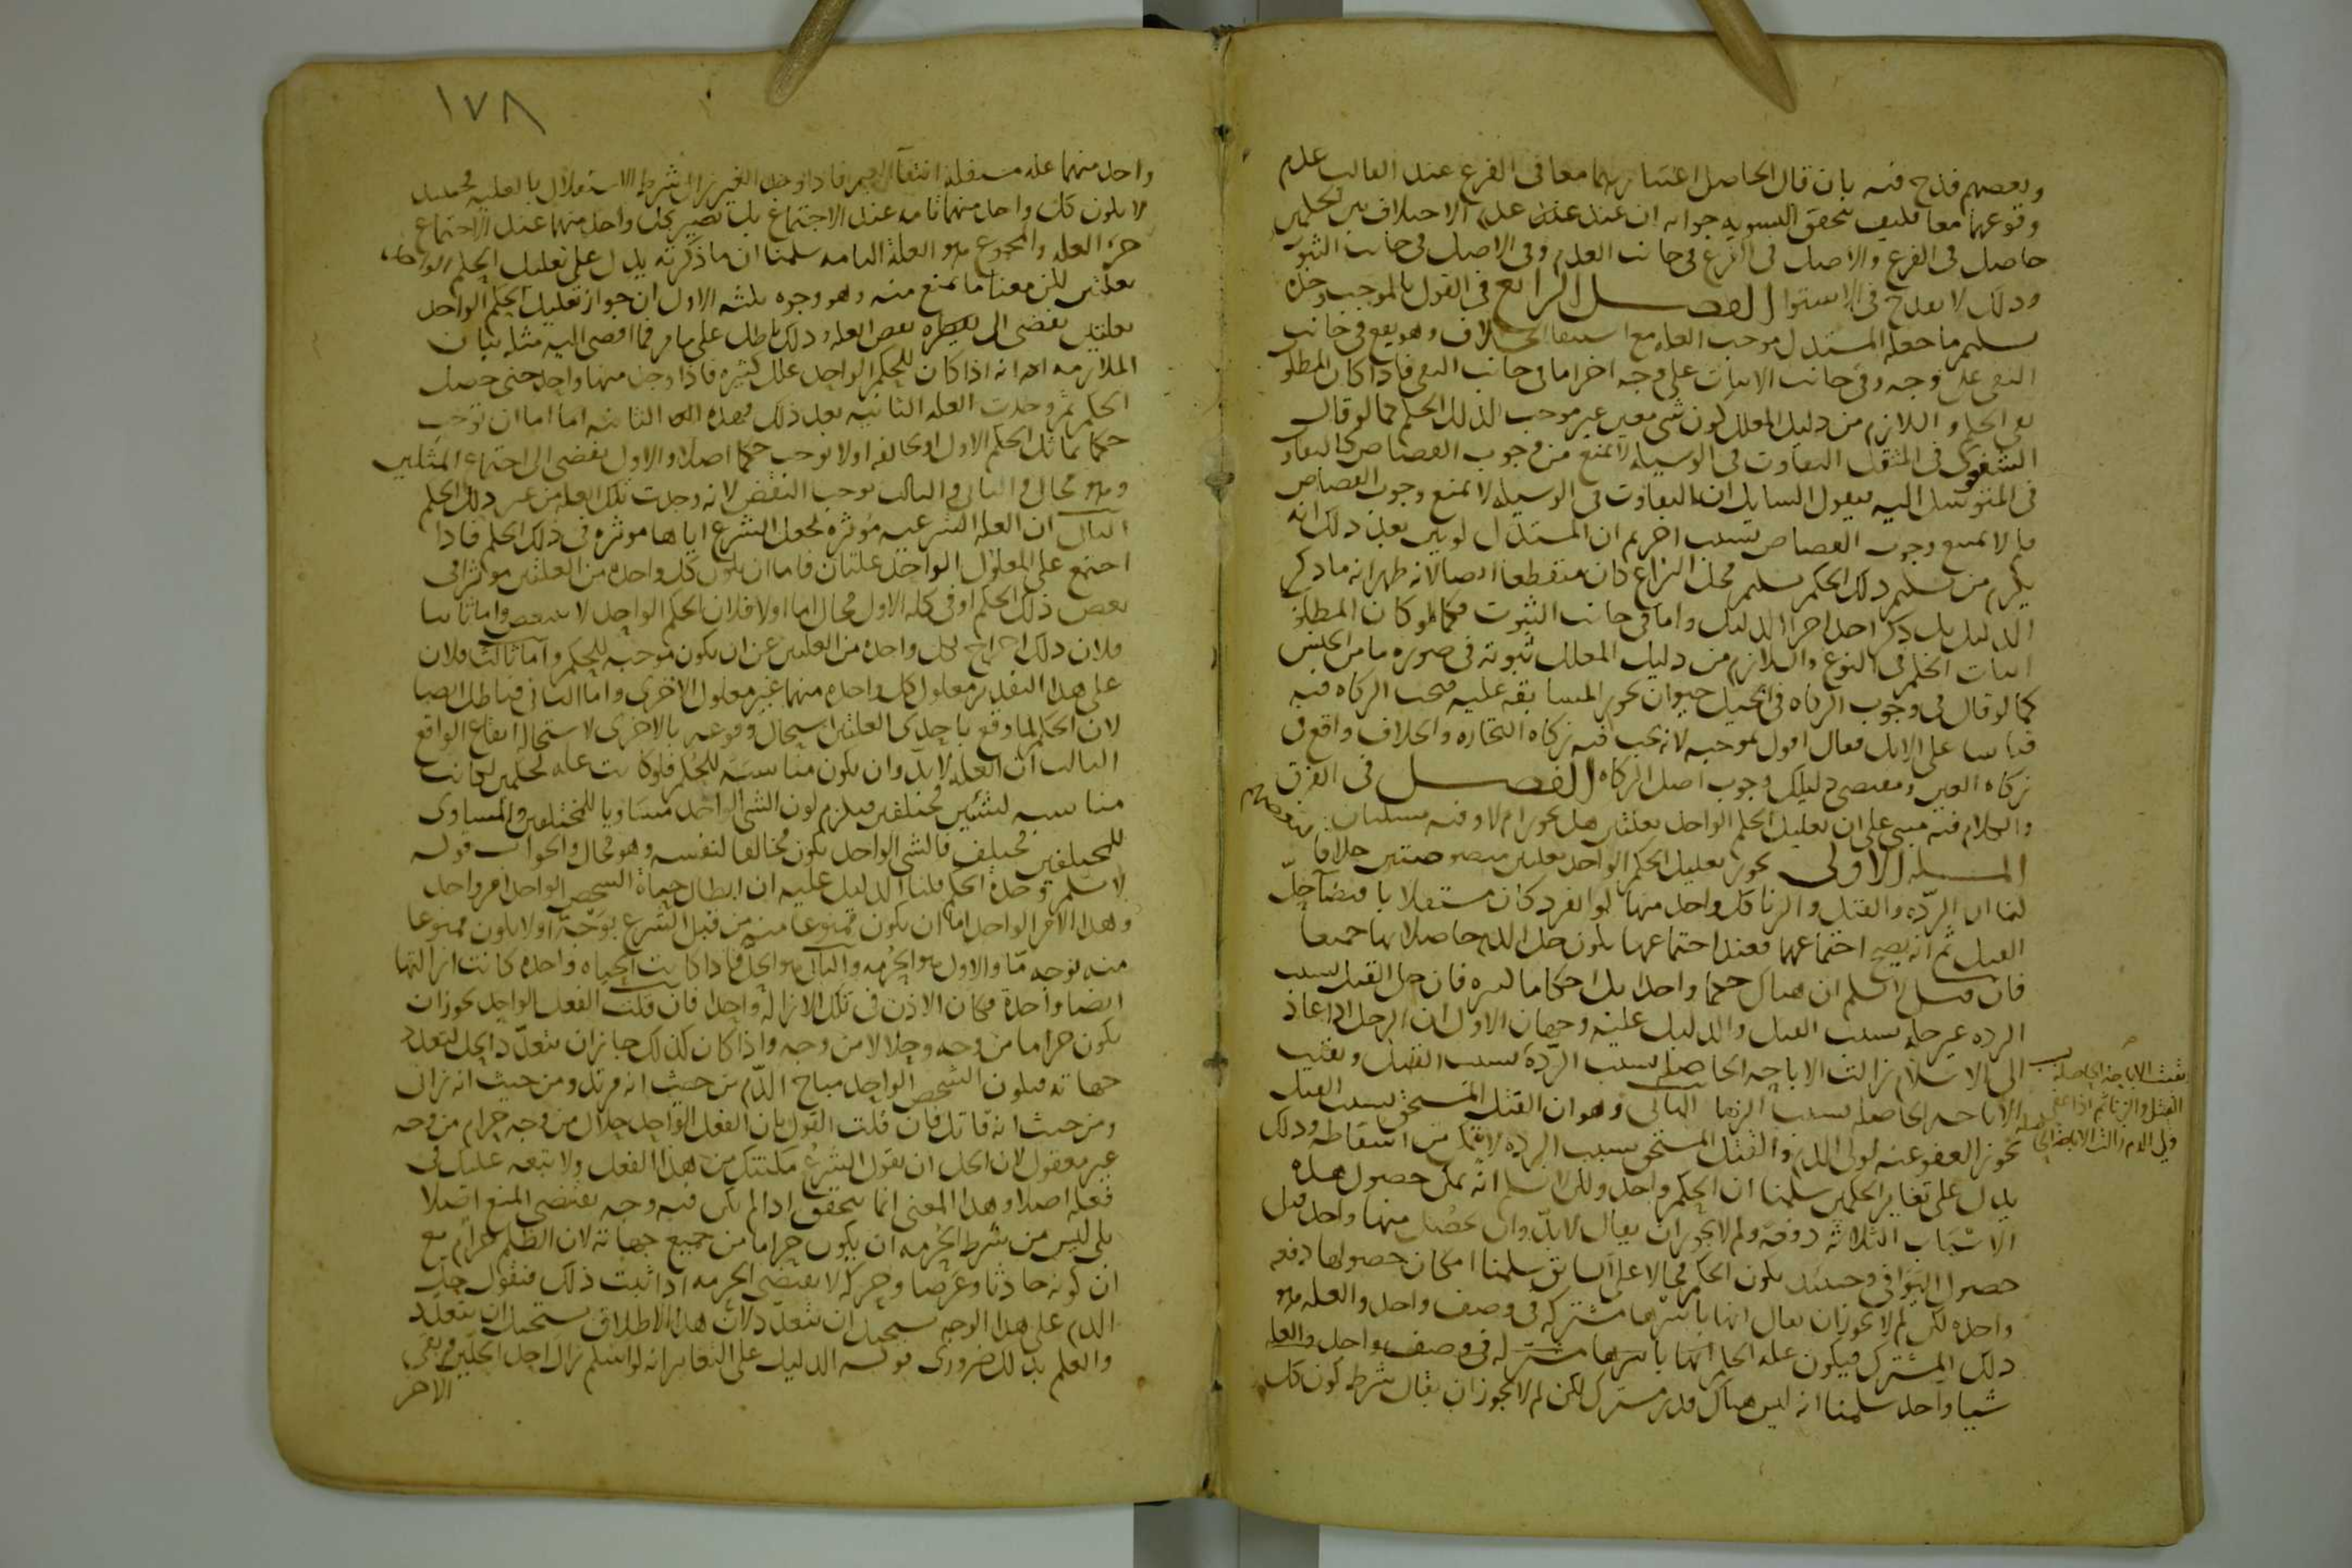 وبعضهم قدح فيه بان قال الحاصل اعتبارهما معا فى الفرع عند القالب عدم
وقوعهما معا فكيف تتحقق التسويه جوابه ان عند عدم الاختلاف بين الحكمين
حاصل فى الفرع والاصل لكن فى الفرع فى جانب العدم وفى الاصل فى جانب الثبوت
وذلك لا يقدح فى الاستوا الفصل الرابع فى القول بالموجب وحده
تسليم ما جعله المستدل موجب العله مع استبقا الخلاف وهو يقع فى جانب
النفى على وجه وفى جانب الاثبات على وجه اخر اما فى جانب النفى فاذا كان المطلوب
نفى الحكم واللازم من دليل المعلل كون شى معين غير موجب لذلك الحكم كما لو قال
الشفعوى فى المثقل التفاوت فى الوسيله لا يمنع من وجوب القصاص كالتفاوت
فى المتوسل اليه فيقول السايل ان التفاوت فى الوسيله لا يمنع وجوب القصاص
فلم لا يمتنع وجوب القصاص بسبب اخر ثم ان المستدل لو بين بعد ذلك انه
يلزم من تسليم ذلك الحكم تسليم محل النزاع كان منقطعا ايضا لانه ظهر انه ما ذكر
الدليل بل ذكر احد اجزا الدليل واما فى جانب الثبوت فكما لو كان المطلوب
اثبات الحكم فى النوع واللازم من دليل المعلل ثبوته فى صوره ما من الجنس
كما لو قال فى وجوب الزكاه فى الخيل حيوان تجوز المسابقه عليه فتجب الزكاه فيه
قياسا على الابل فقال اقول بموجبه لانه تجب فيه زكاه التجاره والخلاف واقع فى
زكاه العين ومقتضى دليلك وجوب اصل الزكاه الفصل فى الفرق
والكلام فيه مبنى على ان تعليل الحكم الواحد بعلتين هل يجوز ام لا وفيه مسلتان
المسله الاولى يجوز تعليل الحكم الواحد بعلتين منصوصتين خلافا
لبعضهم
لنا ان الرده والقتل والزنا كل واحد منها لو انفرد كان مستقلا باقتضآ حل
القتل ثم انه يصح اجتماعهما فعند اجتماعها يكون حل الدم حاصلا بها جميعا
فان قيل لا نسلم ان هناك حكما واحدا بل احكاما كثيره فان حل القتل بسبب
الرده غير حله بسبب القتل والدليل عليه وجهان الاول ان الرجل اذا عاد
الى الاسلام زالت الاباحه الحاصله بسبب الرده
بقيت الاباحه الحاصله بسبب
القتل والزنا ثم اذا عفى
ولى الدم زالت الاباحه الحاصله
بسبب القتل وبقيت
الاباحه الحاصله بسبب الزنا الثانى وهو ان القتل المستحق بسبب القتل
يجوز العفو عنه لولى الدم والقتل المستحق بسبب الرده لا يتمكن من اسقاطه وذلك
يدل على تغاير الحكمين سلمنا ان الحكم واحد ولكن لا نسلم انه يمكن حصول هذه
الاسباب الثلاثه دفعه ولم لا يجوز ان يقال لا بد وان يحصل منها واحد قبل
حصول البواقى وحينئذ يكون الحكم محالا على السابق سلمنا امكان حصولها دفعه
واحده لكن لم لا يجوز ان يقال انها باسرها مشتركه فى وصف واحد والعله هو
ذلك المشترك فيكون عله الحكم انها باسرها مشتركه فى وصف واحد والعله
شيا واحد سلمنا انه ليس هناك قدر مشترك لكن لم لا يجوز ان يقال شرط كون كل
١٧٨
واحد منهما عله مستقله انتفآ الغير فاذا وجد الغير زال شرط الاستقلال بالعليه فحينئذ
لا يكون كل واحد منهما تامه عند الاجتماع بل تصير كل واحد منهما عند الاجتماع
جزء العله والمجموع هو العله التامه سلمنا ان ما ذكرته يدل على تعليل الحكم الواحد
بعلتين لكن معنا ما يمنع منه وهو وجوه ثلثه الاول ان جواز تعليل الحكم الواحد
بعلتين يفضى الى نقض العله وذلك باطل على ما مر فما افضى اليه مثله بيان
الملازمه انه اذا كان للحكم الواحد علل كثيره فاذا وجد منها واحد حتى حصل
الحكم ثم وجدت العله الثانيه بعد ذلك فهذه الثانيه اما ان توجب
حكما يماثل الحكم الاول او يخالفه او لا توجب حكما اصلا والاول يفضى الى اجتماع المثلين
وهو محال والثانى والثالث يوجب النقض لانه وجدت تلك العله من غير ذلك الحكم
الثانى ان العله الشرعيه موثره بجعل الشرع اياها موثره فى ذلك الحكم فاذا
اجتمع على المعلول الواحد علتان فاما ان يكون كل واحده من العلتين موثرا فى
بعض ذلك الحكم او فى كله الاول محال اما اولا فلان الحكم الواحد لا يتبعض واما ثانيا
فلان ذلك اخراج لكل واحده من العلتين عن ان يكون موجبه للحكم وآما ثالثا فلان
على هذا التقدير معلول كل واحده منهما غير معلول الاخرى واما الثانى فباطل ايضا
لان الحكم لما وقع باحدى العلتين استحال وقوعه بالاخرى لاستحاله ايقاع الواقع
الثالث ان العله لا بد وان يكون مناسبه للحكم فلو كانت عله لحكمين لكانت
مناسبه لشيئين مختلفين فيلزم كون الشى الواحد مساويا للمختلفين والمساوى
للمختلفين مختلف فالشى الواحد يكون مخالفا لنفسه وهو محال والجواب قوله
لا نسلم وحدة الحكم قلنا الدليل عليه ان ابطال حياة الشخص الواحد امر واحد
وهذا الامر الواحد اما ان يكون ممنوعا منه من قبل الشرع بوجه او لا يكون ممنوعا
منه بوجه ما والاول هو الحرمه والثانى هو الحل فاذا كانت الحياه واحده كانت ازالتها
ايضا واحدة فكان الاذن فى تلك الازاله واحدا فان قلت الفعل الواحد يجوز ان
يكون حراما من وجه وحلالا من وجه واذا كان كذلك جاز ان يتعدد الحل لتعدد
جهاته فيكون الشخص الواحد مباح الدم من حيث انه مرتد ومن حيث انه زان
ومن حيث انه قاتل فان قلت القول بان الفعل الواحد حلال من وجه حرام من وجه
غير معقول لان الحل ان يقول الشرع مكنتك من هذا الفعل ولا تبعه عليك فى
فعله اصلا وهذا المعنى انما يتحقق اذا لم يكن فيه وجه يقتضى المنع اصلا
بلى ليس من شرط الحرمه ان يكون حراما من جميع جهاته لان الظلم حرام مع
ان كونه حادثا وعرضا وحركه لا يقتضى الحرمه اذا ثبت ذلك فنقول حل
الدم على هذا الوجه يستحيل ان يتعدد لان هذا الاطلاق يستحيل ان يتعدد
والعلم بذلك ضرورى قوله الدليل على التغاير انه لو اسلم زال احد الحلين وبقى
الاخر